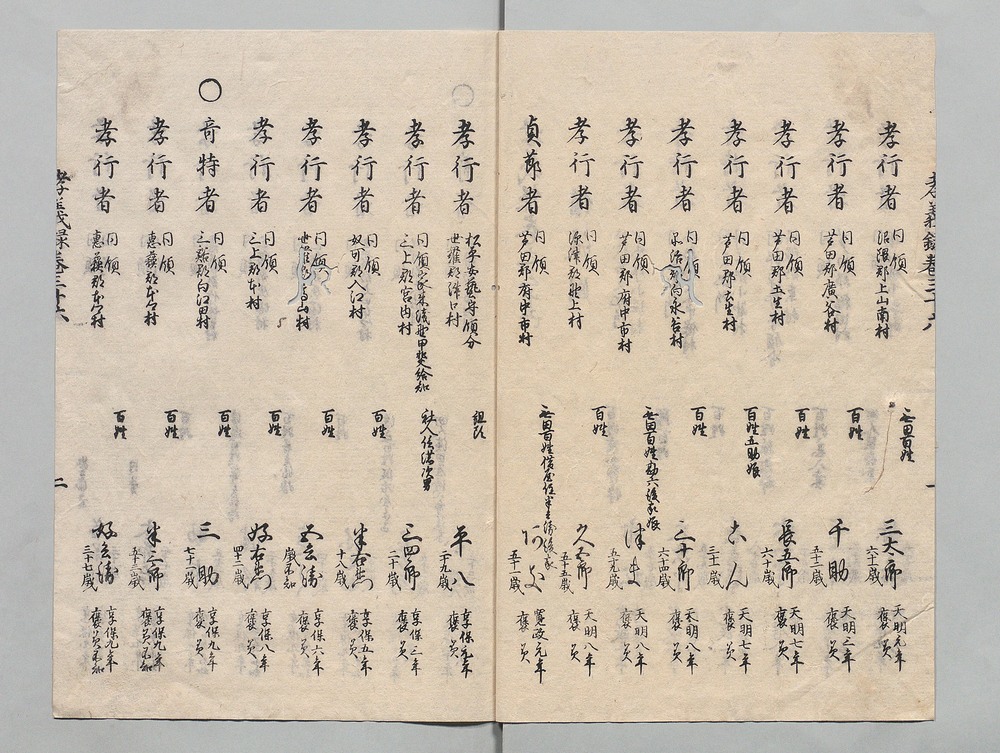 孝行者
沼隈郡上山南村
無田百姓
三太郎
六十一歳
天明元年
褒美
孝行者
同領
芦田郡廣谷村
百姓
千助
五十三歳
天明二年
褒美
孝行者
同領
芦田郡土生村
百姓
長五郎
六十歳
天明七年
褒美
孝行者
同領
芦田郡土生村
百姓五助娘
こん
三十一歳
天明七年
褒美
孝行者
同領
品治郡向永谷村
百姓
三十郎
六十四歳
天明八年
褒美
孝行者
同領
芦田郡府中市村
無田百姓勘六後家娘
天明八年
褒美
孝行者
同領
深津郡野上村
百姓
久五郎
五十五歳
天明八年
褒美
貞節者
同領
芦田郡府中市村
五十一歳
寛政元年
褒美
孝行者
松平安藝守領分
世羅郡津口村
組頭
平八
二十九歳
享保元年
褒美
孝行者
三上郡宮内村
三四郎
二十歳
享保三年
褒美
孝行者
同領
奴可郡入江村
百姓
半右衛門
十八歳
享保五年
褒美
孝行者
同領
百姓
五兵衛
歳不知
享保六年
褒美
孝行者
同領
三上郡本村
百姓
好右衛門
四十二歳
享保八年
褒美
○
奇特者
同領
三谿郡向江田村
百姓
三助
七十一歳
享保九年
褒美
孝行者
同領
恵蘇郡本村
百姓
半三郎
五十三歳
享保九年
褒美不知
孝行者
同領
恵蘇郡本村
百姓
好兵衛
三十七歳
享保九年
褒美不知
孝義録巻三十六
二